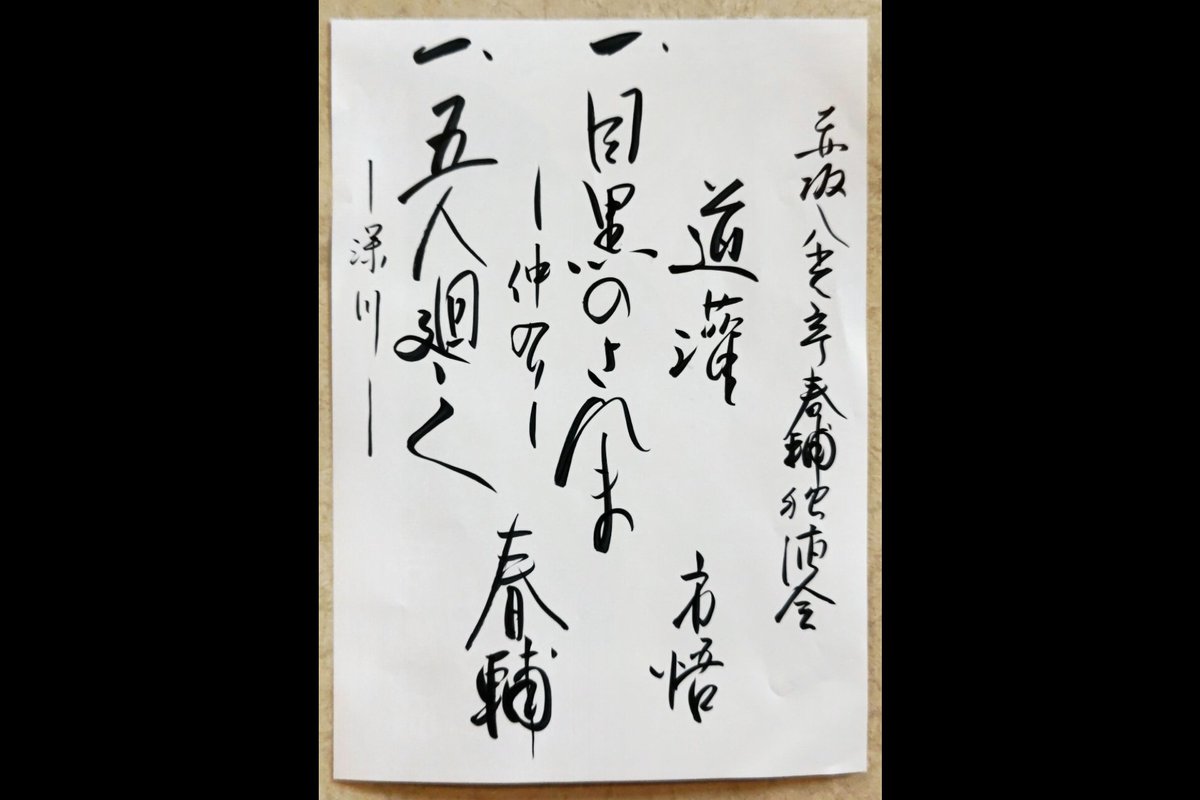 赤坂八光亭春輔独演会
道灌 市悟
一、目黒のさんま
―仲の―
一、五人廻し
―深川―
春輔